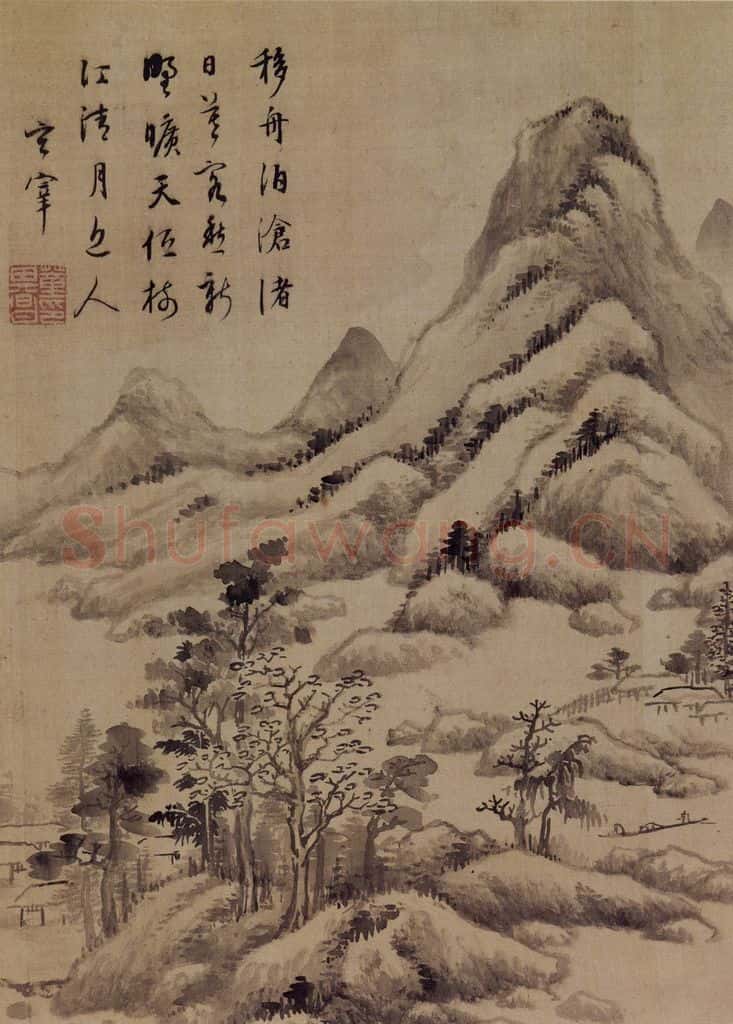 移舟泊滄渚
日暮客愁新
野曠天低樹
江清月近人
玄宰
Shufawang.CN